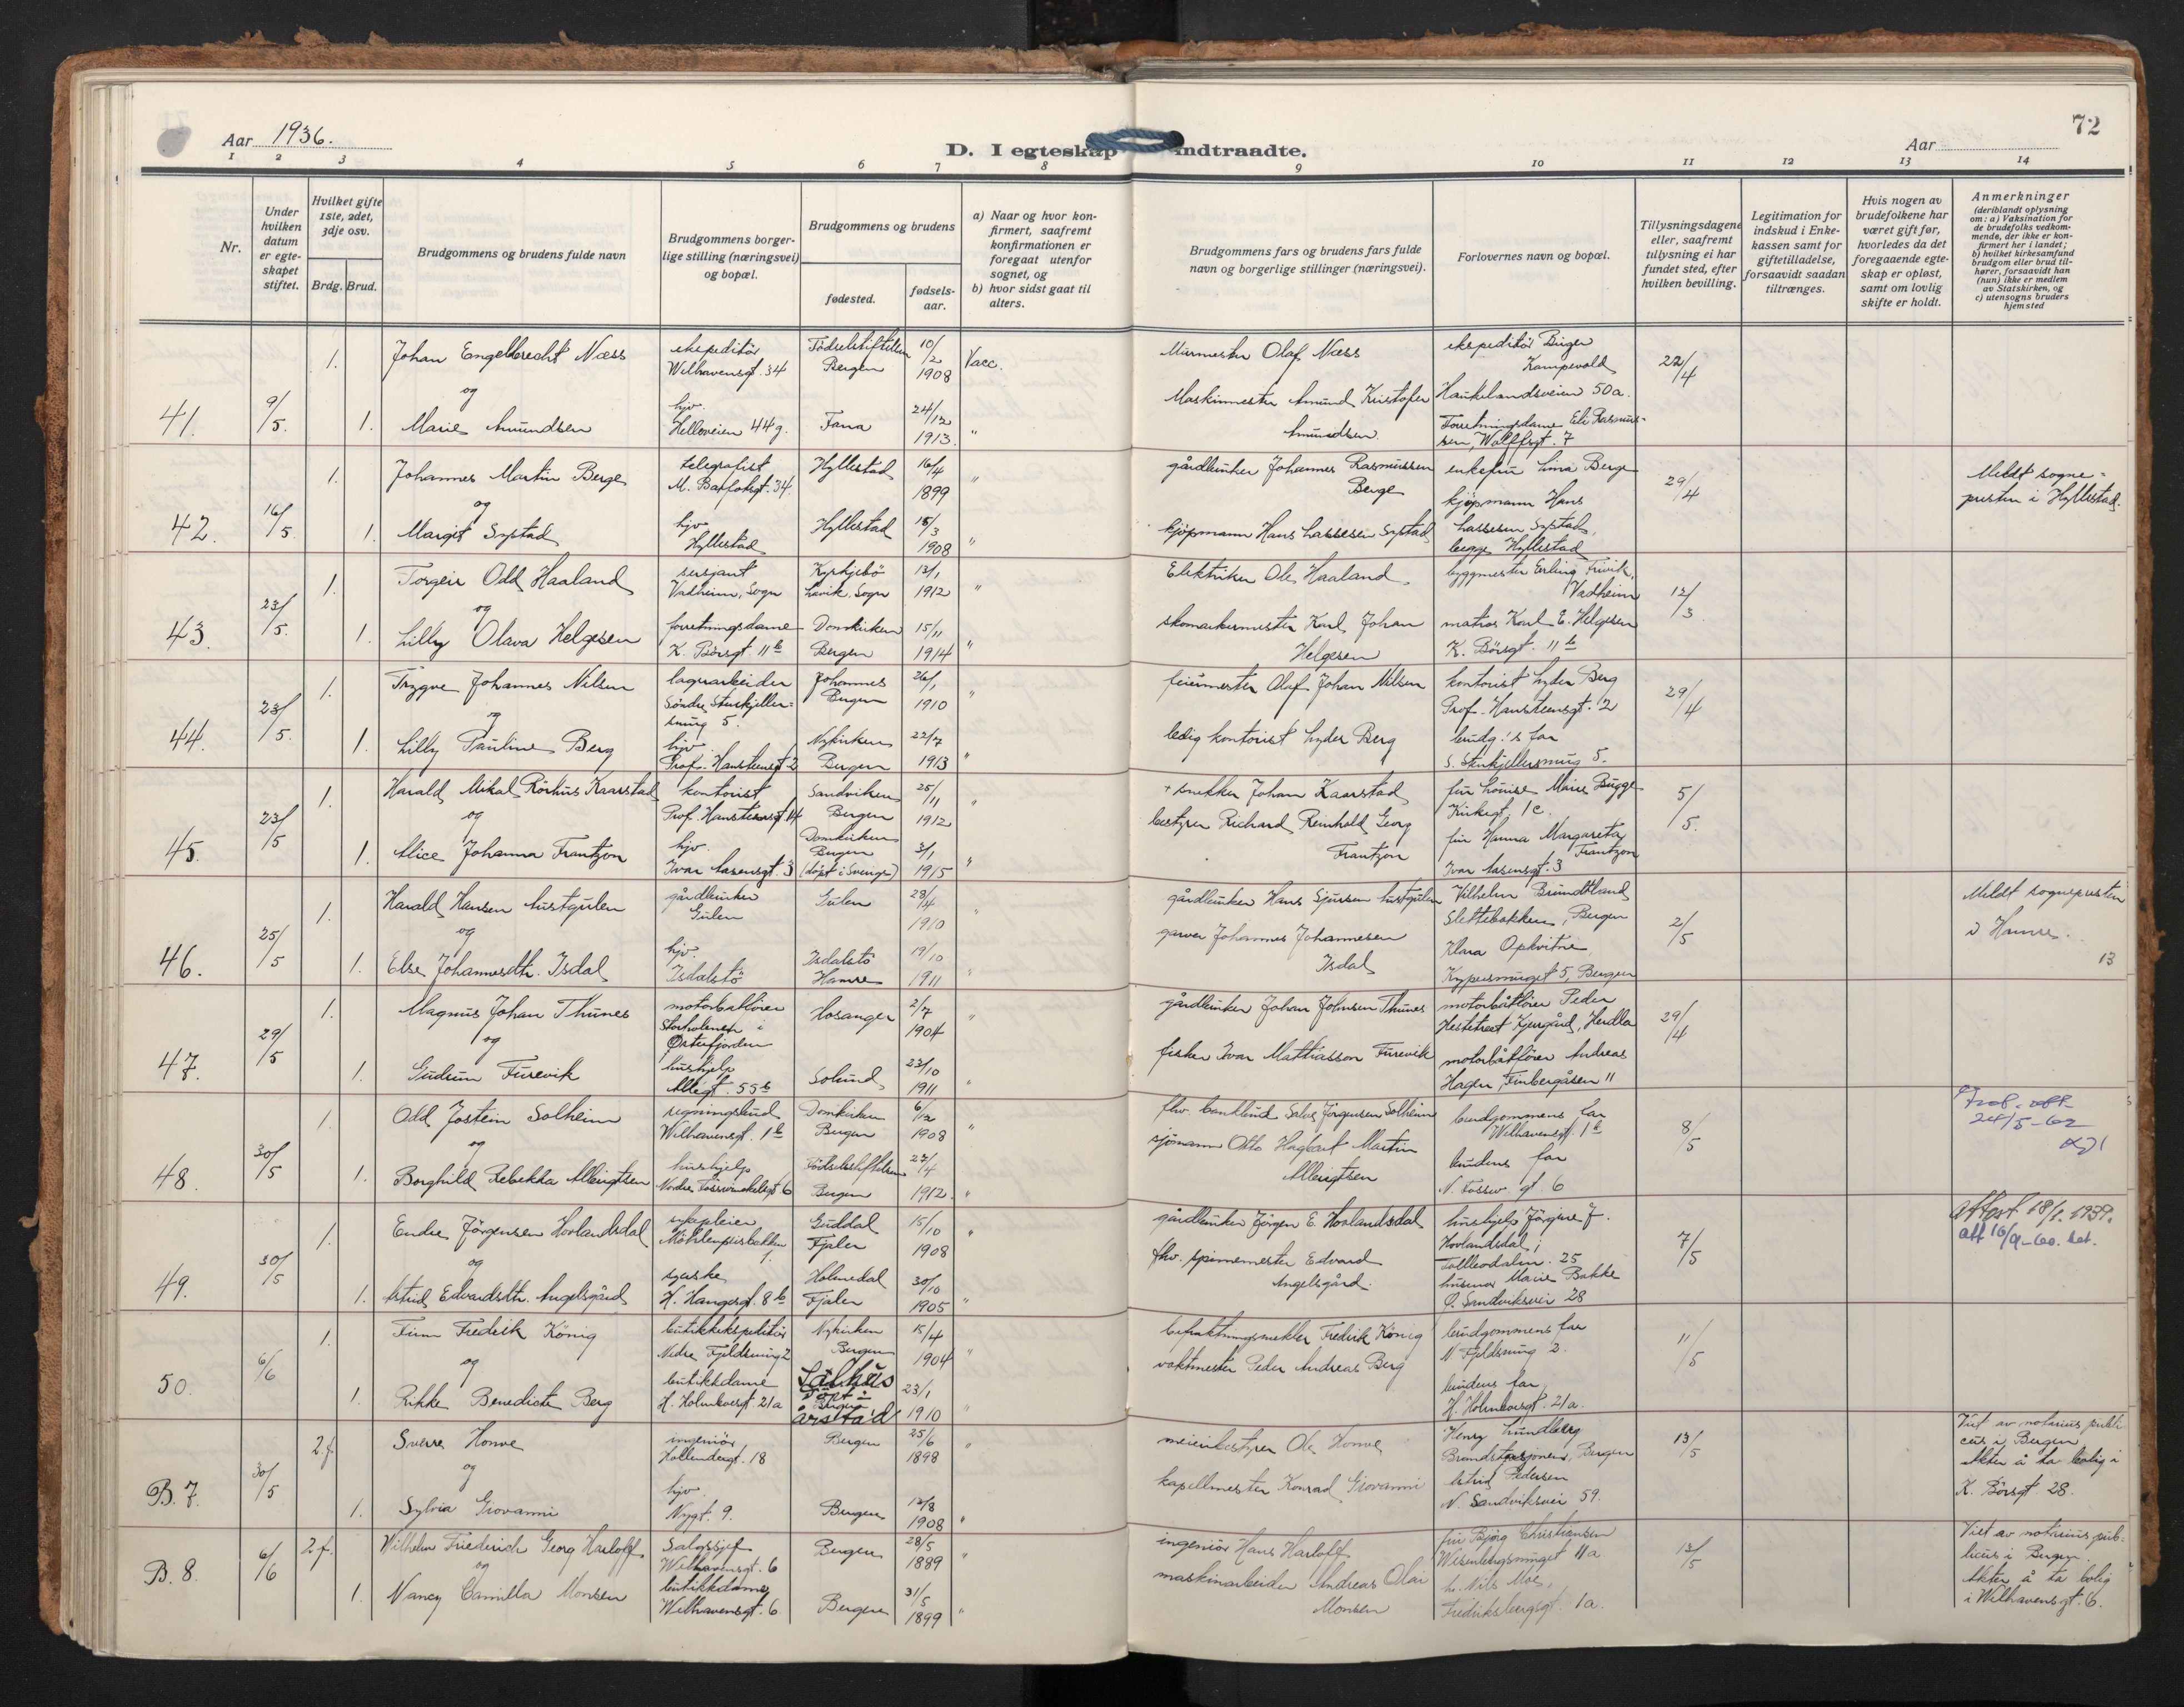 72
Aar 1936.
D. I egteskap indtraadte.
Aar
1 2 3 4 5 6 7 8 9 10 11 12 13 14
Nr.
Under hvilken datum er egteskapet stiftet.
Hvilket gifte 1ste, 2det, 3dje osv.
Brdg. Brud.
Brudgommens og brudens fulde navn
Brudgommens borgerlige stilling (næringsvei) og bopæl.
Brudgommens og brudens
fødested.
fødselsaar.
a) Naar og hvor konfirmert, saafremt konfirmationen er foregaat utenfor sognet, og
b) hvor sidst gaat til alters.
Brudgommens fars og brudens fars fulde navn og borgerlige stillinger (næringsvei).
Forlovernes navn og bopæl.
Tillysningsdagene eller, saafremt tillysning ei har fundet sted, efter hvilken bevilling.
Legitimation for indskud i Enkekassen samt for giftetilladelse, forsaavidt saadan tiltrænges.
Hvis nogen av brudefolkene har været gift før, hvorledes da det foregaaende egteskap er opløst, samt om lovlig skifte er holdt.
Anmerkninger
(deriblandt oplysning om: a) Vaksination for de brudefolks vedkommende, der ikke er konfirmert her i landet; b) hvilket kirkesamfund brudgom eller brud tilhører, forsaavidt han (hun) ikke er medlem av Statskirken, og c) utensogns bruders hjemsted
41. 9/5. 1. Johan Engelbrecht Næss ekspeditör Welhavensgt. 34 Födselsstiftelsen Bergen 10/2 1908 Vacc. Murmester Olaf Næss ekspeditör Birger Kampevold Haukelandsveien 50a. 22/4
og
1. Marie Amundsen hjv. Helleveien 44g. Fana 24/12 1913. " Maskinmester Amund Kristofer Amundsen. Forretningsdame Eli Rasmussen, Wolffsgt. 7
42. 16/5 1. Johannes Martin Berge telegrafist M. Barfotsgt. 34. Hyllestad 16/4 1899 " gårdbruker Johannes Rasmussen Berge enkefru Lina Berge 29/4 Meldt sognepresten i Hyllestad.
og
1. Margit Systad hjv. Hyllestad Hyllestad 15/3 1908 " kjöpmann Hans Lassesen Systad kjöpmann Hans Lassesen Systad, begge Hyllestad
43. 23/5. 1. Torgeir Odd Haaland sersjant Vadheim, Sogn Kyrkjebö Lavik, Sogn 12/1 1912 " Elektriker Ole Haaland byggmester Erling Vadheim 12/3
og
1. Lilly Olava Helgesen forretningsdame K. Börsgt 11b Domkirken Bergen 15/11 1914 " skomakermester Karl Johan Helgesen matros Karl E. Helgesen K. Börsgt. 11b
44. 23/5. 1. Trygve Johannes Nilsen lagerarbeider Söndre Stenkjellersmug 5. Johannes Bergen 26/1 1910 " feiermester Olaf Johan Nilsen kontorist Lyder Berg Prof. Hansteensgt. 2 29/4
og
1. Lilly Pauline Berg hjv. Prof. Hansteensgt 2 Nykirken Bergen 22/7 1913 " ledig kontorist Lyder Berg brudg.'s far S. Stenkjellersmug 5.
45. 23/5 1. Harald Mikal Rörhus Kaarstad kontorist Prof. Hansteensgt 14 Sandviken Bergen 25/11 1912 " + snekker Johan Kaarstad fru Louise Marie Bugge Kirkegt. 1c. 5/5.
og
1. Alice Johanna Frantzon hjv. Ivar Aasensgt. 3 Domkirken Bergen (döpt i Sverige) 3/1 1915 " bestyrer Richard Reinhold Georg Frantzon fru Hanna Margareta Frantzon Ivar Aasensgt. 3
46. 25/5 1. Harald Hansen Austgulen gårdbruker Gulen Gulen 23/4 1910 " gårdbruker Hans Sjursen Austgulen Vilhelm Brundtland Slettebakken, Bergen 2/5 Meldt sognepresten i Hamre. 13
og
1. Else Johannesdtr. Isdal hjv. Isdalstö Isdalstö Hamre 19/10 1911 " garver Johannes Johannesen Isdal Klara Opkvitne Kypersmuget 5, Bergen
47. 29/5 1. Magnus Johan Thunes motorbåtförer Storholmen i Østerfjorden Hosanger 2/7 1904 " gårdbruker Johan Johnsen Thunes motorbåtförer Peder Hestetræt Kjærgård, Herdla 29/4
og
1. Gudrun Furevik hushjelp Allégt. 55b Solund 23/10 1911 " fisker Ivar Mathiasson Furevik motorbåtförer Andreas Hagen, Finbergåsen 11
48. 30/5 1. Odd Jostein Solheim regningsbud Welhavensgt. 1b Domkirken Bergen 6/12 1908 " fhv. bankbud Salve Jörgensen Solheim brudgommens far Welhavensgt 1b 8/5 24/5-62
og
1. Borghild Rebekka Albrigtsen hushjelp Nordre Fosswinckelsgt 6 Födselsstiftelsen Bergen 23/4 1912. " sjömann Otto Hagbart Martin Albrigtsen brudens far N. Fossw. gt. 6
49. 30/5 1. Endre Jörgensen Hovlandsdal sykepleier Möhlenprisbakken 1. Guddal Fjaler 15/10 1908 " gårdbruker Jörgen E. Hovlandsdal hushjelp Jörgine J. Hovlandsdal, 25 7/5 Attest 18/1. 1939. att 16/9-60.
og
1. Astrid Edvardsdtr. Angelsgård syerske H. Haugesgt. 8b Holmedal Fjaler 30/10 1905 " fhv. spinnemester Edvard Angelsgård. husmor Marie Bakke Ø. Sandviksvei 28
50. 6/6 1. Finn Fredrik König butikkekspeditör Nedre Fjeldsmug 2 Nykirken Bergen 15/4 1904 " befraktningsmekler Fredrik König brudgommens far N Fjeldsmug 2. 11/5
og
1. Rikke Benedicte Berg butikkdame H. Holmboesgt. 21a Salhus Döpt i Bergen Årstad 23/1 1910 " vaktmester Peder Andreas Berg brudens far H. Holmboesgt. 21a.
B. 7. 30/5 2.f Sverre Honve ingeniör Hollendergt. 18 Bergen 25/6 1898 " meieribestyrer Ole Honve Henry Lundberg Brandstasjonen, Bergen 13/5 Viet av notarius publicus i Bergen. Akter å ta bolig i K. Börsgt 28.
og
1. Sylvia Giovanni hjv. Nygt. 9. Bergen 12/8 1908 " kapellmester Konrad Giovanni Astrid Pedersen N. Sandviksvei 59.
B. 8. 6/6 2.f. Wilhelm Friederich Georg Harloff Salgssjef Welhavensgt. 6 Bergen 28/5 1889 " ingeniör Hans Harloff fru Bjørg Christiansen Wesenbergsmuget 11a 13/5 Viet av notarius publicus i Bergen. Akter å ta bolig i Welhavensgt. 6.
og
1. Nancy Camilla Monsen butikkdame Welhavensgt. 6 Bergen 31/5 1899 " maskinarbeider Andreas Olai Monsen hr. Nils Moe, Fredriksbergsgt. 1a.